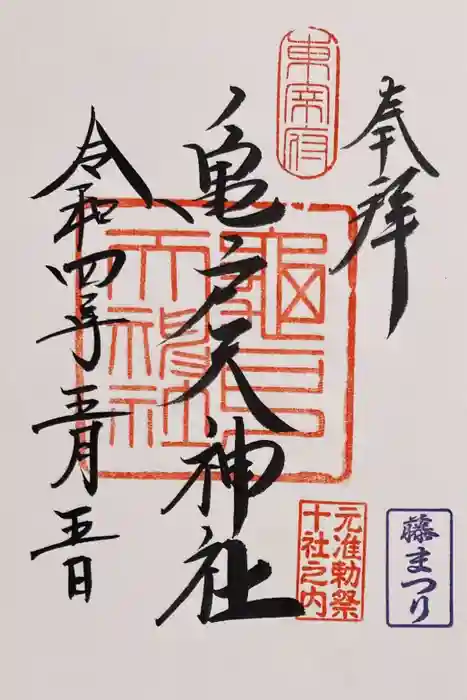 奉拝
東宰府
亀戸天神社
亀戸
天神社
令和四年五月五日
元准勅祭
十社之内
藤まつり